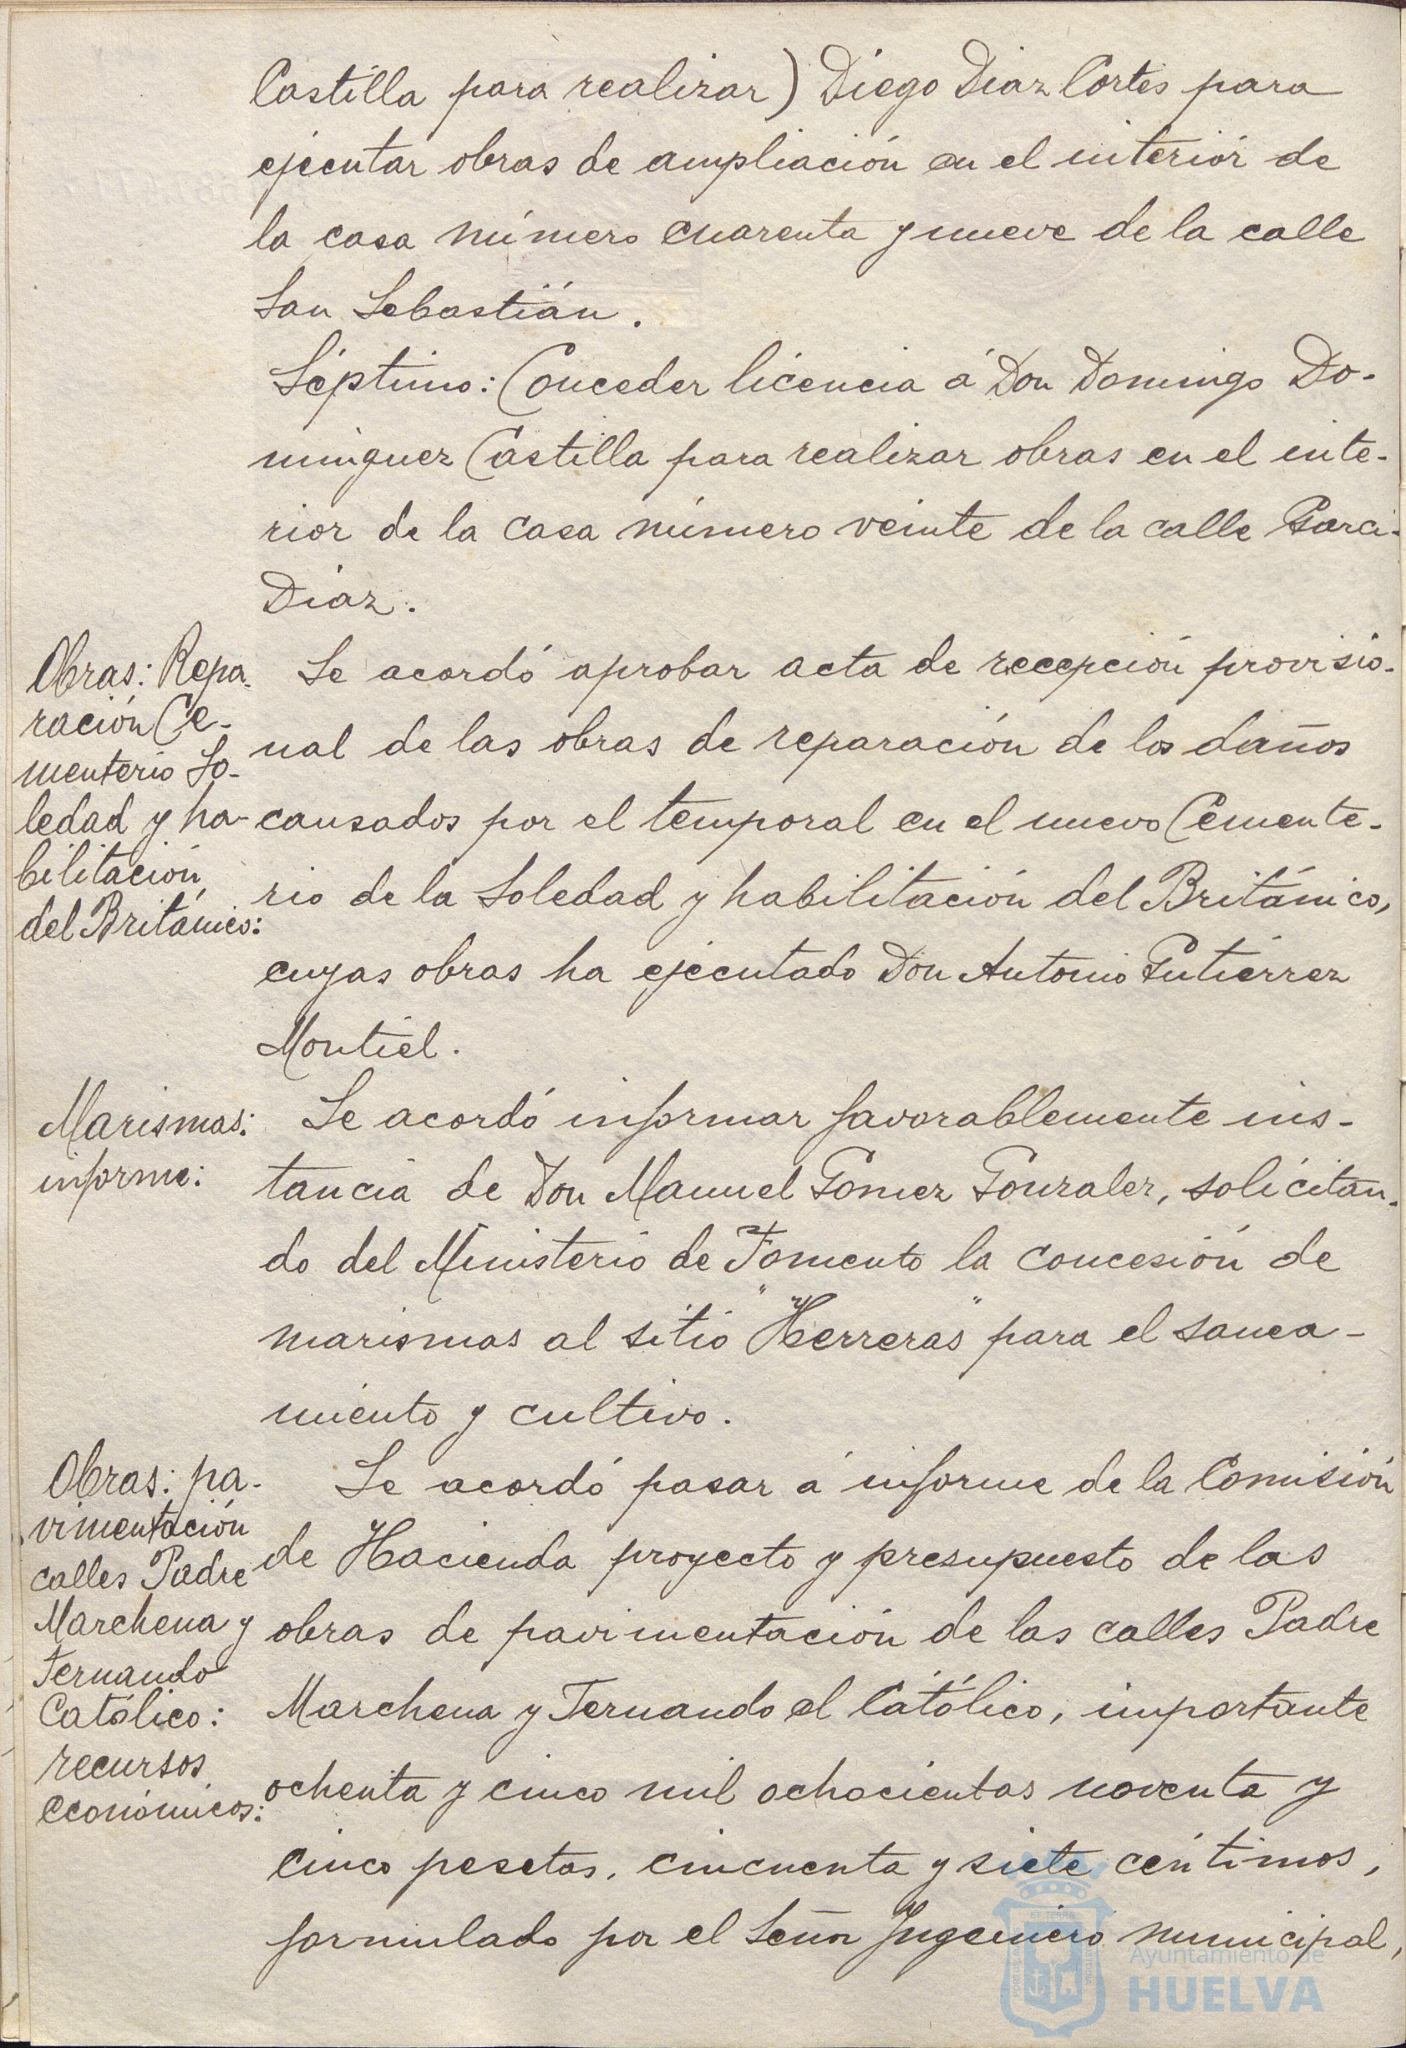 Castilla para realizar) Diego Diaz Cortes para
ejecutar obras de ampliación en el interiór de
la casa número cuarenta y nueve de la calle
San Sebastián.
Séptimo: Conceder licencia á Don Domingo Do-
minguez Castilla para realizar obras en el inte-
rior de la casa número veinte de la calle Garci-
Diaz.
Obras: Repa-
ración Ce-
menterio So-
ledad y ha-
bilitación
del Británico:
Se acordó aprobar acta de recepción provisio-
nal de las obras de reparación de los daños
causados por el temporal en el nuevo Cemente-
rio de la Soledad y habilitación del Británico,
cuyas obras ha ejecutado Don Antonio Gutiérrez
Montiel.
Marismas:
informe:
Se acordó informar favorablemente ins-
tancia de Don Manuel Gomez Gonzalez, solicitan-
do del Ministerio de Fomento la concesión de
marismas al sitio "Herreras" para el sanea-
miento y cultivo.
Obras: pa-
vimentación
calles Padre
Marchena y
Fernando
Católico:
recursos
económicos:
Se acordó pasar á informe de la Comisión
de Hacienda proyecto y presupuesto de las
obras de pavimentación de las calles Padre
Marchena y Fernando el Católico, importante
ochenta y cinco mil ochocientas noventa y
cinco pesetas, cincuenta y siete céntimos,
formulado por el Señor Ingeniero municipal,
Ayuntamiento de
HUELVA